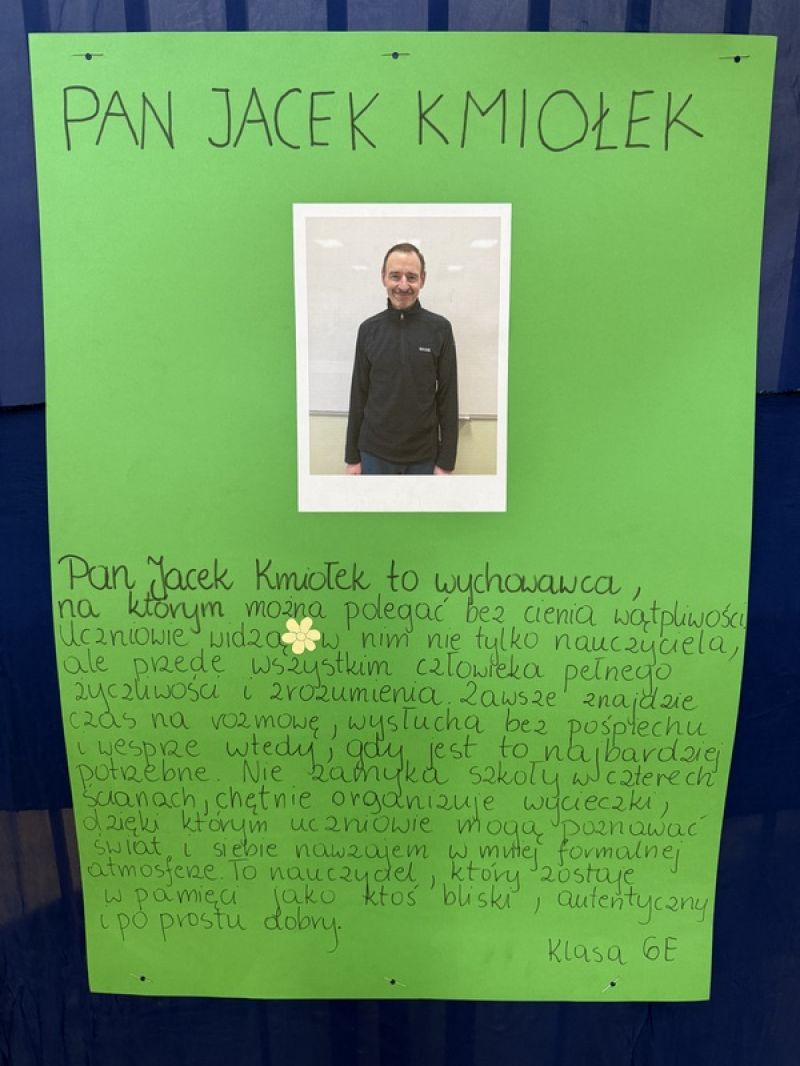 PAN JACEK KMIOŁEK
Pan Jacek Kmiołek to wychowawca,
na którym można polegać bez cienia wątpliwości.
Uczniowie widzą w nim nie tylko nauczyciela,
ale przede wszystkim człowieka pełnego
życzliwości i zrozumienia. Zawsze znajdzie
czas na rozmowę, wysłucha bez pośpiechu
i wesprze wtedy, gdy jest to najbardziej
potrzebne. Nie zamyka szkoły w czterech
ścianach, chętnie organizuje wycieczki,
dzięki którym uczniowie mogą poznawać
świat i siebie nawzajem w mniej formalnej
atmosferze. To nauczyciel, który zostaje
w pamięci jako ktoś bliski, autentyczny
i po prostu dobry.
Klasa 6E